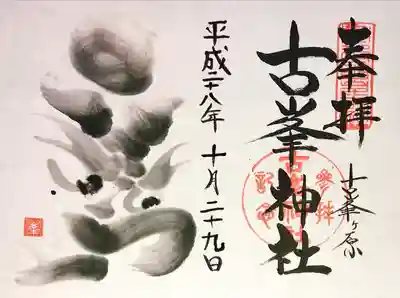 奉拝
古峯ヶ原
古峯神社
参拝
記念
平成二十八年 十月二十九日